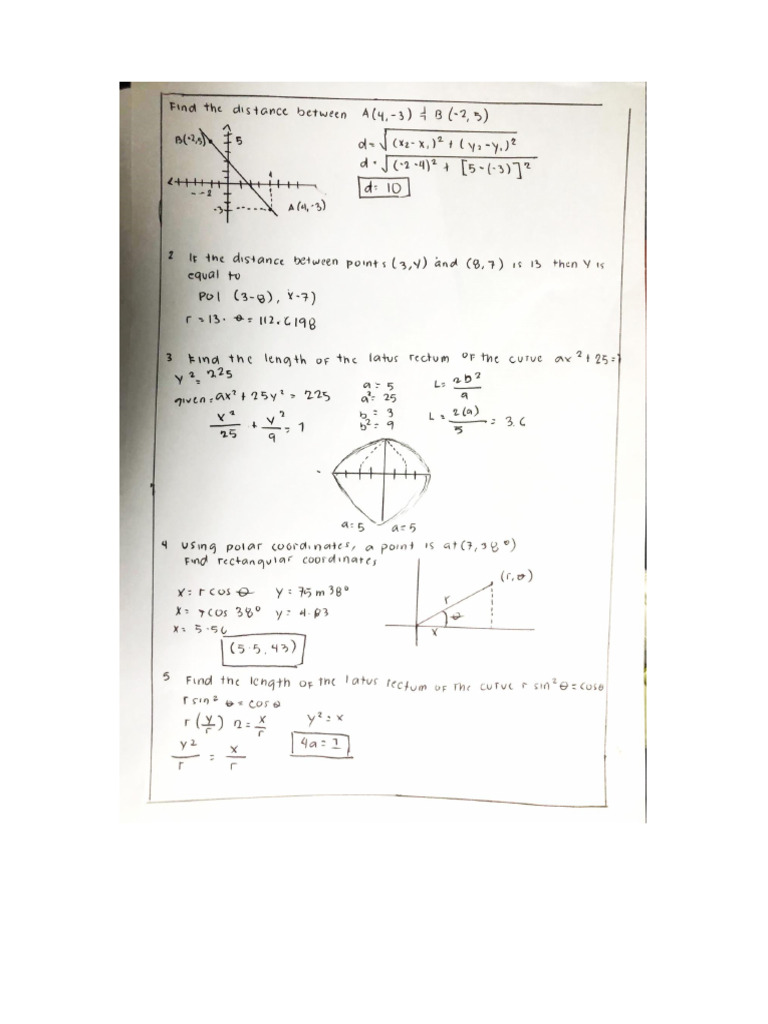 Find the distance between A(4,-3) & B(-2,5)
B(-2,5)
5
d=√(x₂-x₁)²+(y₂-y₁)²
d=√(-2-4)²+[5-(-3)]²
d=10
4
-2
-3
A(4,-3)
2 If the distance between points (3,y) and (8,7) is 13 then y is
equal to
Pol (3-8), x-7)
r=13. θ=112.6198
3 Find the length of the latus rectum of the curve ax²+25=
y²=225
given=ax²+25y²=225
x²/25 + y²/9 = 1
a=5
a²=25
b=3
b²=9
L=2b²/a
L=2(a)/5=3.6
a=5 a=5
4 using polar coordinates, a point is at (7,38°)
Find rectangular coordinates
x=r cos θ y=75m38°
x=7cos 38° y=4.03
x=5.56
(5.5,43)
(r,θ)
r
θ
x
5 Find the length of the latus rectum of the curve r sin²θ=cosθ
r sin²θ=cosθ
r(y/r)2=x/r y²=x
y²/r = x/r 4a=1